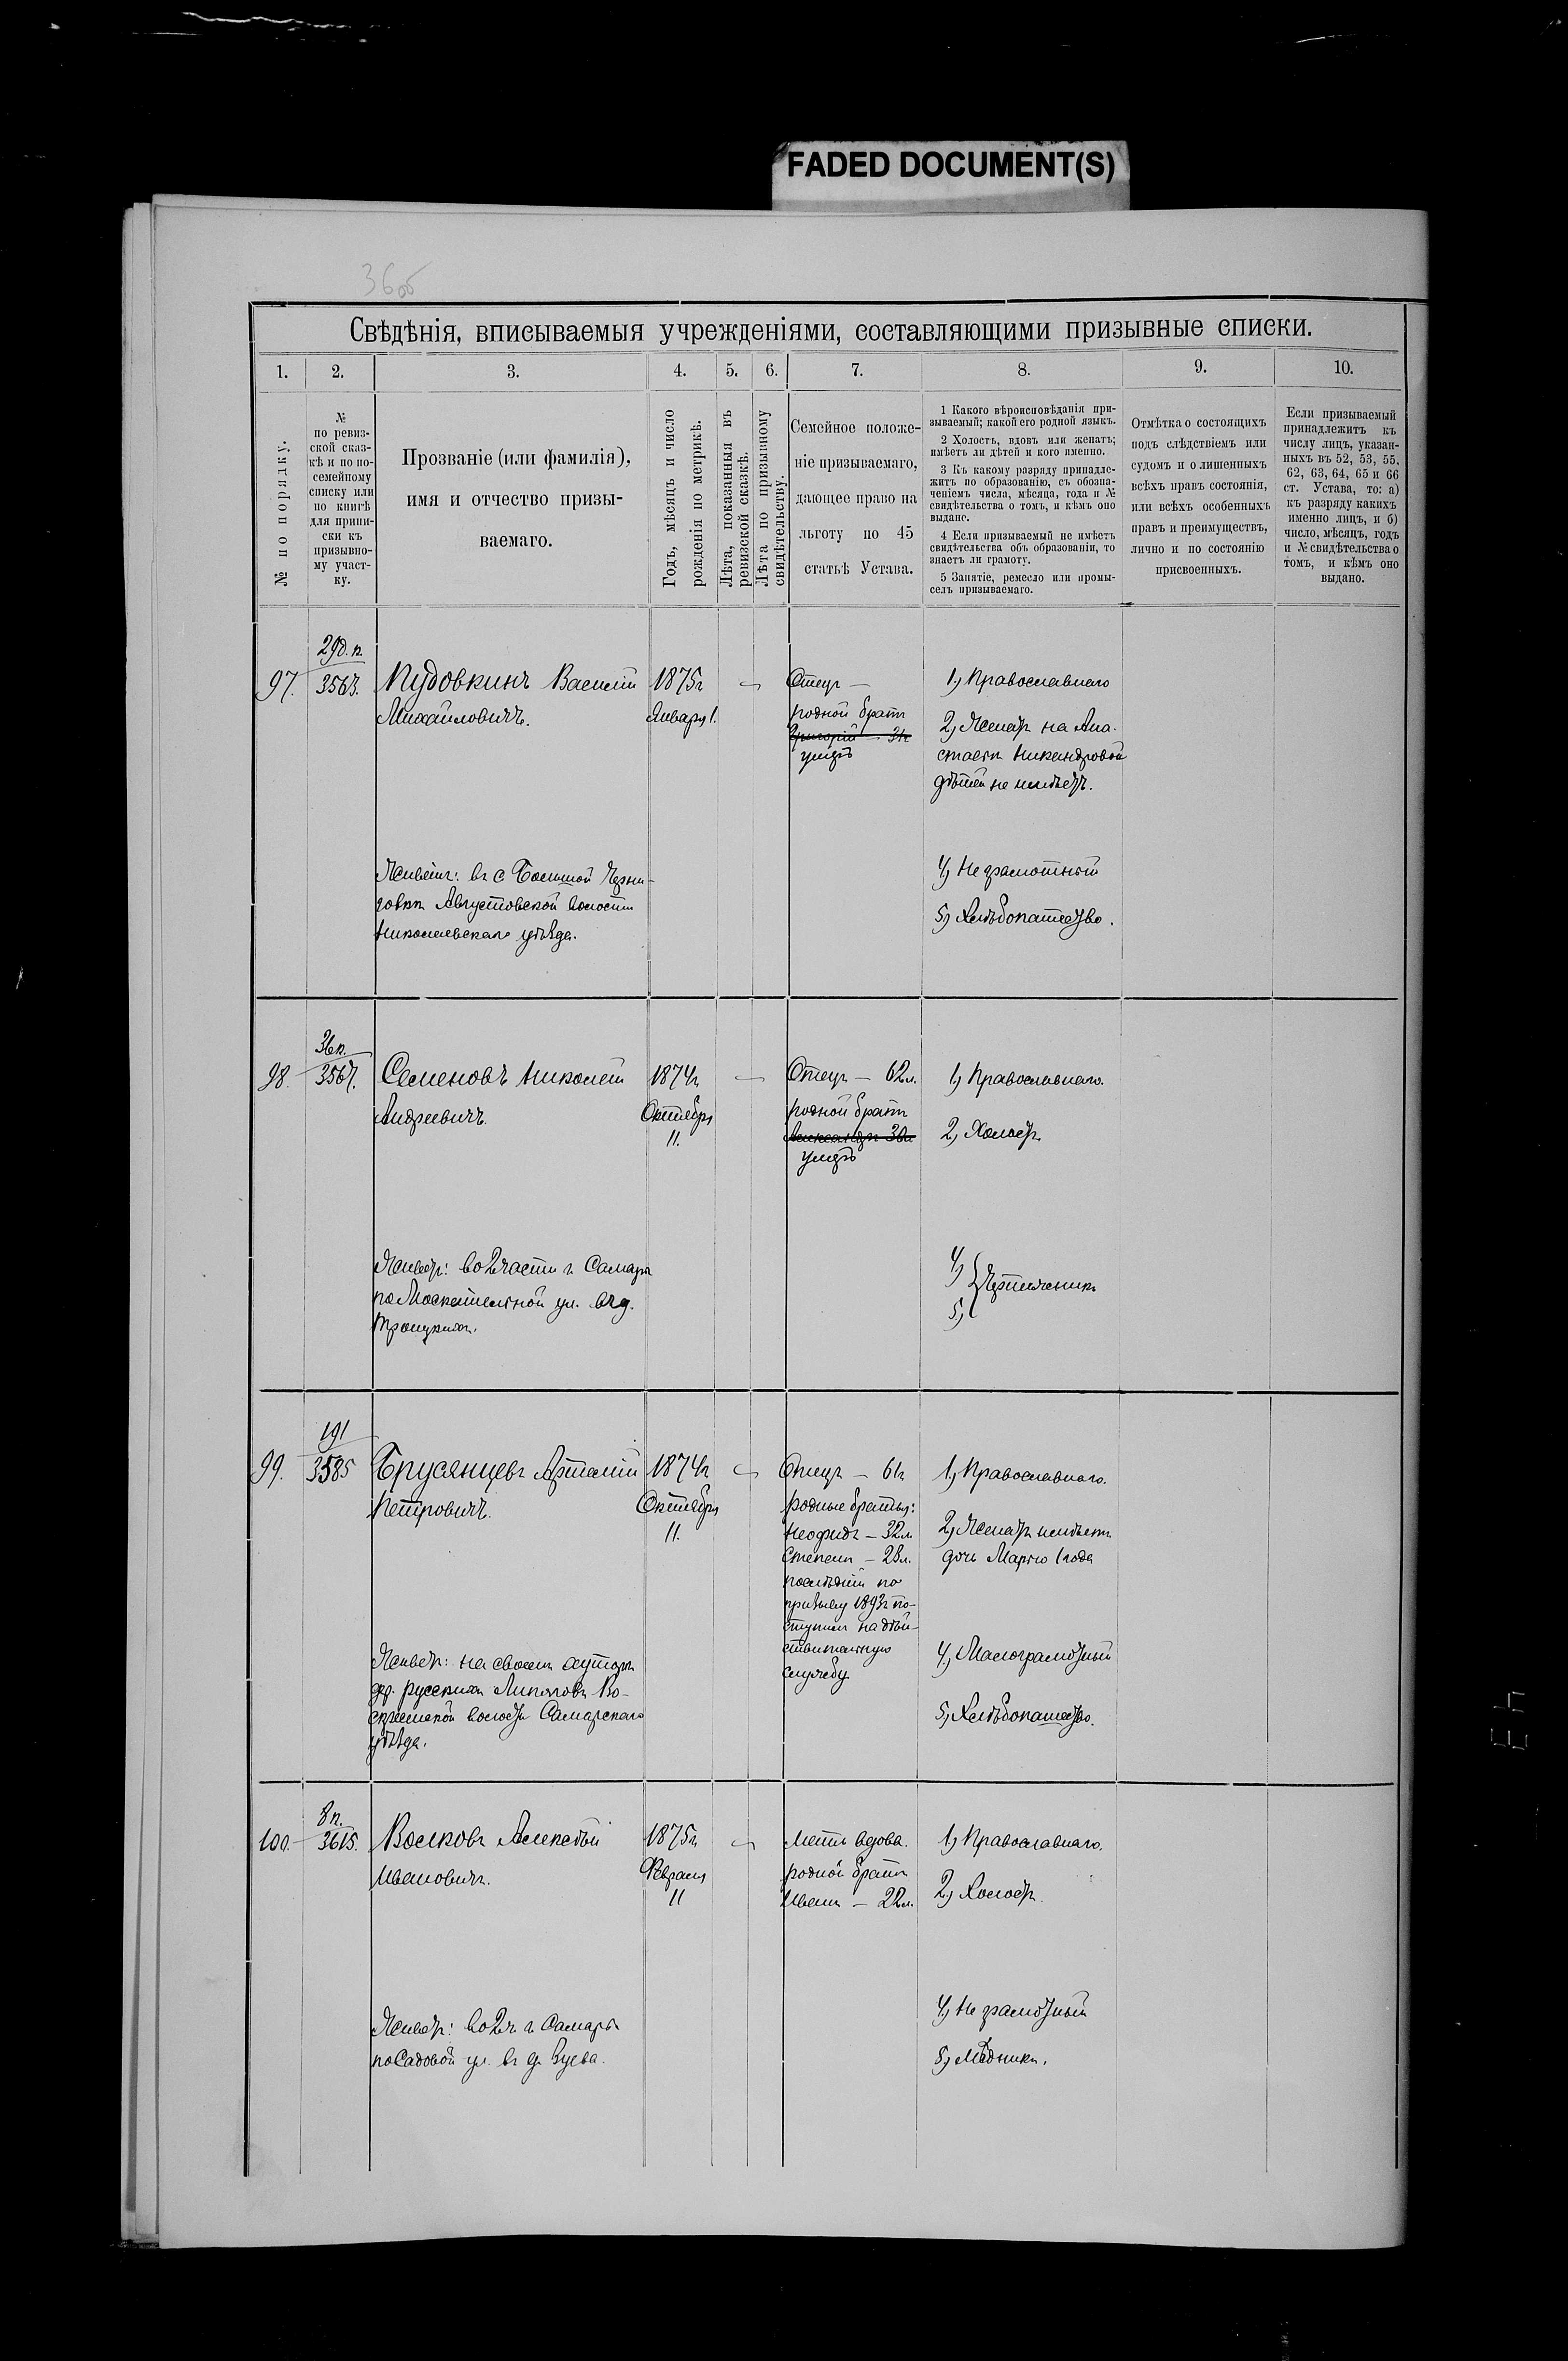 FADED DOCUMENT(S)
36об
Свѣдѣнія, вписываемыя учрежденіями, составляющими призывные списки.
1. 2. 3. 4. 5. 6. 7. 8. 9. 10.
№ по порядку.
№
по ревиз-
ской сказ-
кѣ и по по-
семейному
списку или
по книгѣ
для припи-
ски къ
призывно-
му участ-
ку.
Прозваніе (или фамилія),
имя и отчество призы-
ваемаго.
Годъ, мѣсяцъ и число
рожденія по метрикѣ.
Лѣта, показанныя въ
ревизской сказкѣ.
Лѣта по призывному
свидѣтельству.
Семейное положе-
ніе призываемаго,
дающее право на
льготу по 45
статьѣ Устава.
1 Какого вѣроисповѣданія при-
зываемый; какой его родной языкъ.
2 Холостъ, вдовъ или женатъ;
имѣетъ ли дѣтей и кого именно.
3 Къ какому разряду принадле-
житъ по образованію, съ обозна-
ченіемъ числа, мѣсяца, года и №
свидѣтельства о томъ, и кѣмъ оно
выдано.
4 Если призываемый не имѣетъ
свидѣтельства объ образованіи, то
знаетъ ли грамоту.
5 Занятіе, ремесло или промы-
селъ призываемаго.
Отмѣтка о состоящихъ
подъ слѣдствіемъ или
судомъ и о лишенныхъ
всѣхъ правъ состоянія,
или всѣхъ особенныхъ
правъ и преимуществъ,
лично и по состоянію
присвоенныхъ.
Если призываемый
принадлежитъ къ
числу лицъ, указан-
ныхъ въ 52, 53, 55,
62, 63, 64, 65 и 66
ст. Устава, то: а)
къ разряду какихъ
именно лицъ, и б)
число, мѣсяцъ, годъ
и № свидѣтельства о
томъ, и кѣмъ оно
выдано.
97.
29д.п.
3563.
Пудовкинъ Василій
Михайловичъ.
Живетъ: въ с Большой Черни-
говкѣ Августовской волости
Николаевскаго уѣзда.
1875г
Января 1.
Отецъ —
родной братъ
Григорій 31г
умеръ
1, Православнаго
2, Женатъ на Ана-
стасіи Никандровой
дѣтей не имѣетъ.
4, Неграмотный
5, Хлѣбопашество.
98.
36п.
3567.
Семеновъ Николай
Андреевичъ.
Живетъ: во 2 части г. Самары
по Москательной ул. въ д.
1874г
Октября
11.
Отецъ — 62л.
родной братъ
Александръ 30л
умеръ
1, Православнаго.
2, Холостъ.
4,
5,
99.
191
3585
Брусянцевъ Артемій
Петровичъ.
Живетъ: на своемъ хуторѣ
дер. русскихъ Липяговъ Во-
скресенской волости Самарскаго
уѣзда.
1874г
Октября
11.
Отецъ — 61г
родные братья:
Неофидъ — 32л.
Степанъ — 28л.
послѣдній по
призыву 1893г по-
ступилъ на дѣй-
ствительную
службу.
1, Православнаго.
2, Женатъ имѣетъ
дочь Марью 1 года
4, Малограмотный
5, Хлѣбопашество.
100.
8п.
3615.
Волковъ Алексѣй
Ивановичъ.
Живетъ: во 2 ч. г. Самары
по Садовой ул. въ д. Зуева.
1875г
Февраля
11
Мать вдова.
родной братъ
Иванъ — 22л.
1, Православнаго.
2, Холостъ.
4, Неграмотный
5, Мѣдникъ.